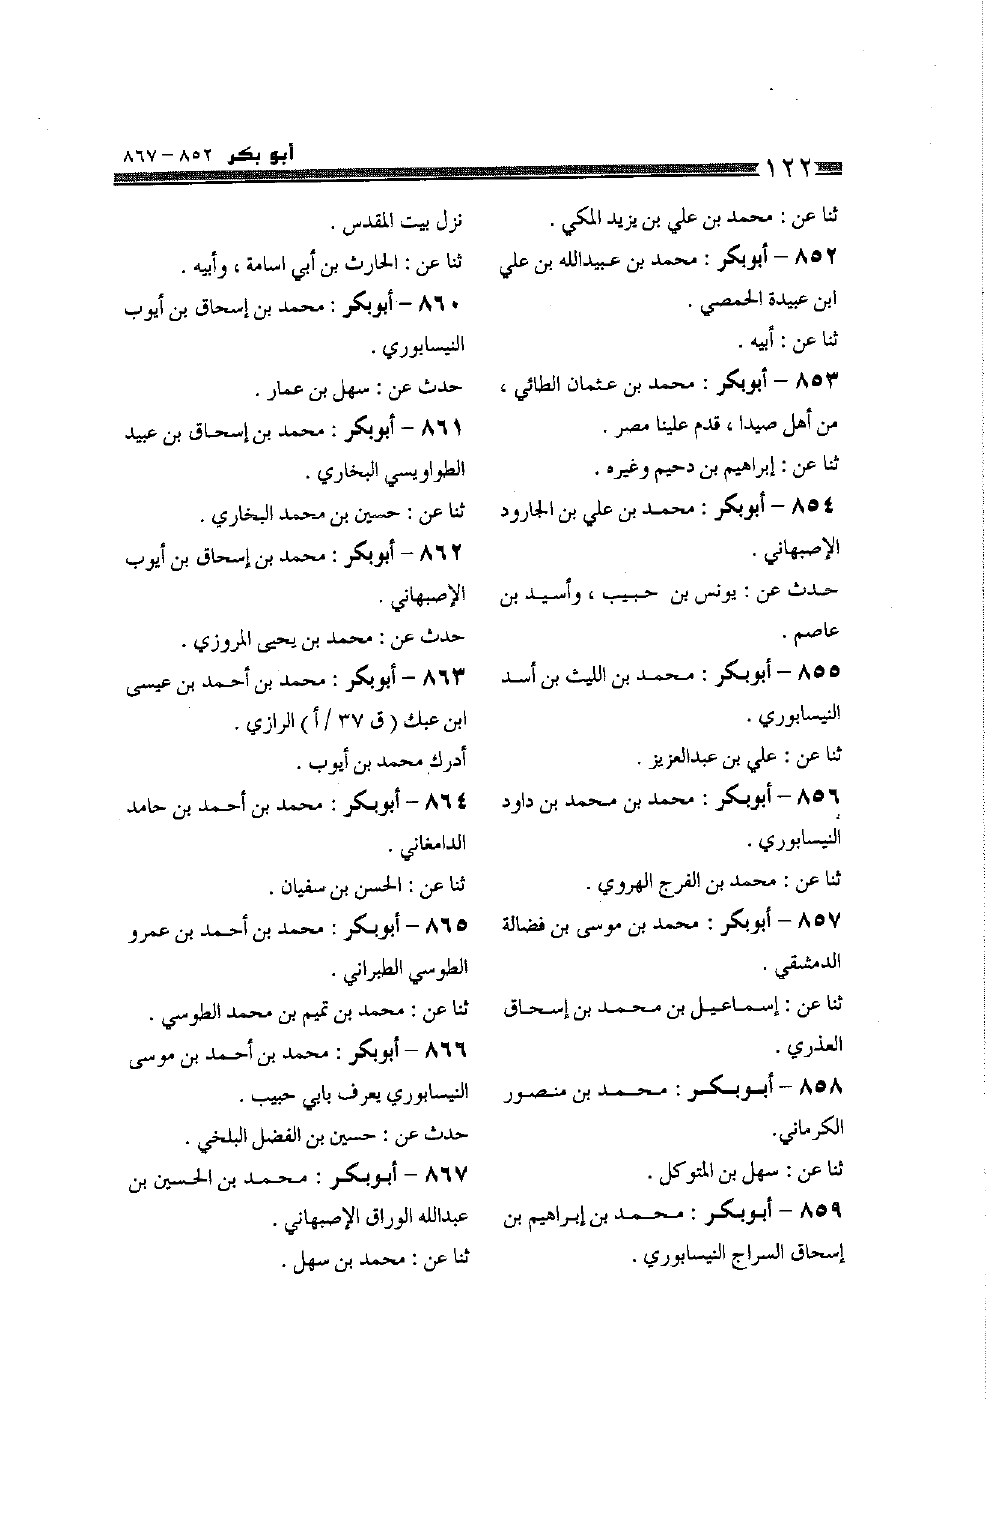 أبو بكر ٨٥٢ – ٨٦٧
١٢٢
ثنا عن : محمد بن علي بن يزيد المكي .
٨٥٢ – أبوبكر : محمد بن عبيدالله بن علي
ابن عبيدة الحمصي .
ثنا عن : أبيه .
٨٥٣ – أبوبكر : محمد بن عثمان الطائي ،
من أهل صيدا ، قدم علينا مصر .
ثنا عن : إبراهيم بن دحيم وغيره .
٨٥٤ – أبوبكر : محمد بن علي بن الجارود
الإصبهاني .
حدث عن : يونس بن حبيب ، وأسيد بن
عاصم .
٨٥٥ – أبوبكر : محمد بن الليث بن أسد
النيسابوري .
ثنا عن : علي بن عبدالعزيز .
٨٥٦ – أبوبكر : محمد بن محمد بن داود
النيسابوري .
ثنا عن : محمد بن الفرج الهروي .
٨٥٧ – أبوبكر : محمد بن موسى بن فضالة
الدمشقي .
ثنا عن : إسماعيل بن محمد بن إسحاق
العذري .
٨٥٨ – أبوبكر : محمد بن منصور
الكرماني.
ثنا عن : سهل بن المتوكل .
٨٥٩ – أبوبكر : محمد بن إبراهيم بن
إسحاق السراج النيسابوري .
نزل بيت المقدس .
ثنا عن : الحارث بن أبي اسامة ، وأبيه .
٨٦٠ – أبوبكر : محمد بن إسحاق بن أيوب
النيسابوري .
حدث عن : سهل بن عمار .
٨٦١ – أبوبكر : محمد بن إسحاق بن عبيد
الطواويسي البخاري .
ثنا عن : حسين بن محمد البخاري .
٨٦٢ – أبوبكر : محمد بن إسحاق بن أيوب
الإصبهاني .
حدث عن : محمد بن يحيى المروزي .
٨٦٣ – أبوبكر : محمد بن أحمد بن عيسى
ابن عبك ( ق ٣٧ / أ ) الرازي .
أدرك محمد بن أيوب .
٨٦٤ – أبوبكر : محمد بن أحمد بن حامد
الدامغاني .
ثنا عن : الحسن بن سفيان .
٨٦٥ – أبوبكر : محمد بن أحمد بن عمرو
الطوسي الطبراني .
ثنا عن : محمد بن تميم بن محمد الطوسي .
٨٦٦ – أبوبكر : محمد بن أحمد بن موسى
النيسابوري يعرف بابي حبيب .
حدث عن : حسين بن الفضل البلخي .
٨٦٧ – أبوبكر : محمد بن الحسين بن
عبدالله الوراق الإصبهاني .
ثنا عن : محمد بن سهل .